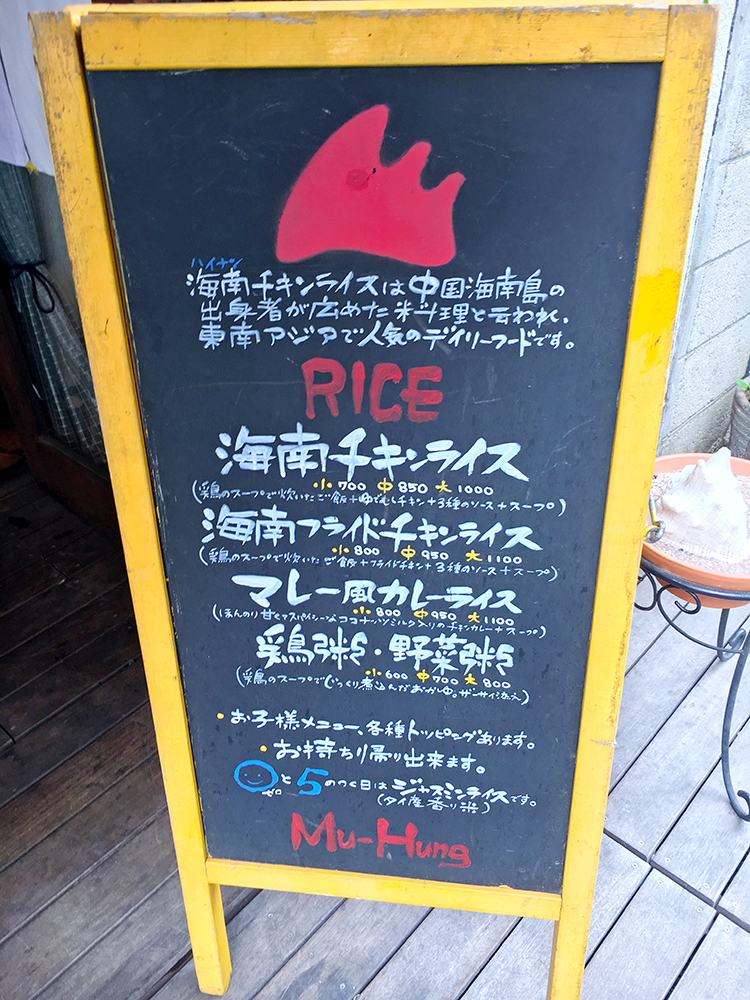 ハイナン
海南チキンライスは中国海南島の
出身者が広めた料理と云われ、
東南アジアで人気のデイリーフードです。
RICE
海南チキンライス
小700 中850 大1000
(鶏のスープで炊いたご飯+ゆでむしチキン+3種のソース+スープ)
海南フライドチキンライス
小800 中950 大1100
(鶏のスープで炊いたご飯+フライドチキン+3種のソース+スープ)
マレー風カレーライス
小800 中950 大1100
(ほんのり甘くてスパイシーなココナッツミルク入りのチキンカレー+スープ)
鶏粥・野菜粥
小600 中700 大800
(鶏のスープでじっくり煮込んだおかゆ。ザーサイ添え)
・お子様メニュー、各種トッピングあります。
・お持ち帰り出来ます。
と5のつく日はジャスミンライスです。
ゼロ
(タイ産香り米)
Mu-Hung